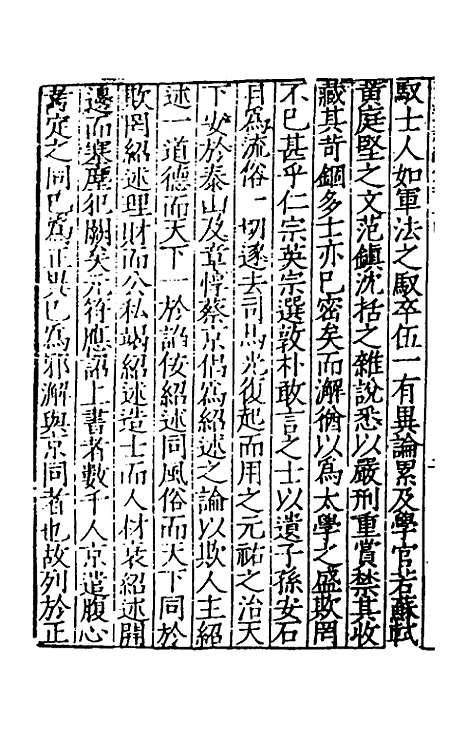 馭士人如軍法之馭卒伍一有異論累及學官若蘇軾
黄庭堅之文范鎮沈括之雜說悉以嚴刑重賞禁其收
藏其苛錮多士亦已密矣而澥猶以爲太學之盛欺罔
不已甚乎仁宗英宗選敦朴敢言之士以遺子孫安石
目爲流俗一切逐去司馬光復起而用之元祐之治天
下安於泰山及章惇蔡京倡爲紹述之論以欺人主紹
述一道德而天下一於謟佞紹述同風俗而天下同於
欺罔紹述理財而公私竭紹述造士而人材衰紹述開
邊而塞塵犯闕矣元符應詔上書者數千人京遣腹心
考定之同已爲正異已爲邪澥與京同者也故列於正